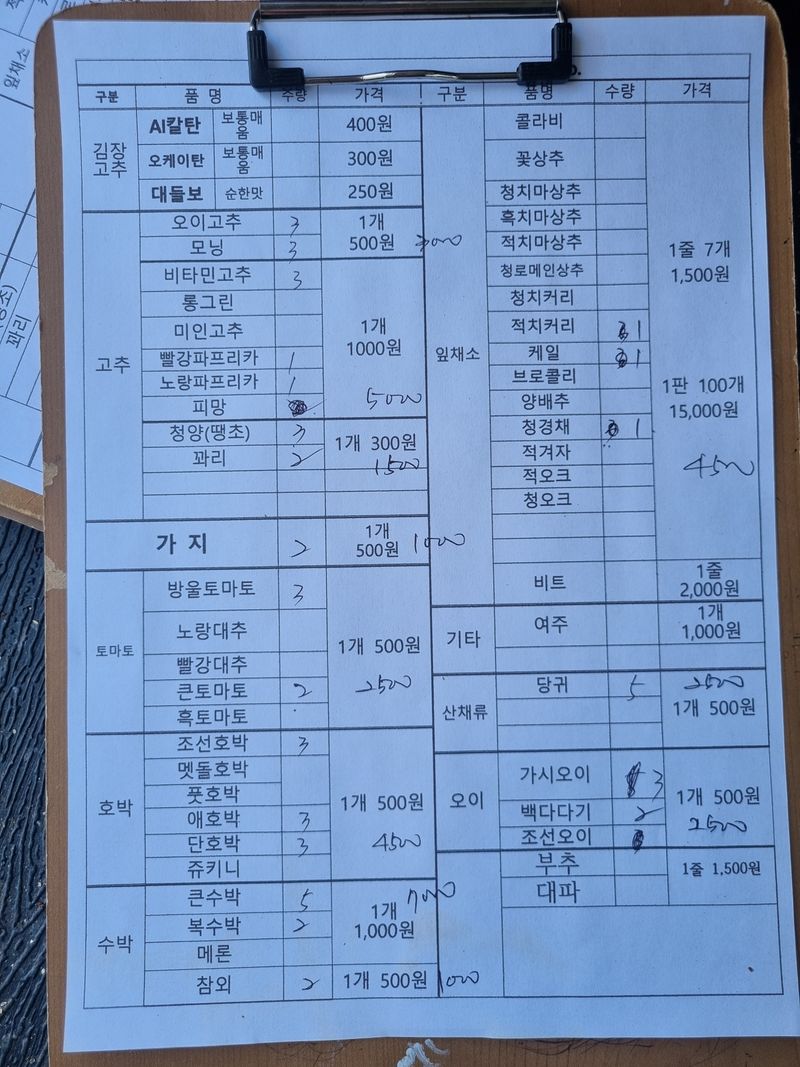 구분 품 명 수량 가격
김장
고추
AI칼탄 보통매움 400원
오케이탄 보통매움 300원
대들보 순한맛 250원
고추
오이고추 3 1개
모닝 3 500원 3000
비타민고추 3
롱그린
미인고추 1개
1000원
빨강파프리카 1
노랑파프리카 1
피망 5000
청양(땡초) 3 1개 300원
꽈리 2 1500
가 지 2 1개
500원 1000
토마토
방울토마토 3
노랑대추 1개 500원
빨강대추
큰토마토 2 2500
흑토마토
호박
조선호박 3
멧돌호박
풋호박 1개 500원
애호박 3
단호박 3 4500
쥬키니
수박
큰수박 5 1개 7000
복수박 2 1,000원
메론
참외 2 1개 500원 1000
구분 품명 수량 가격
잎채소
콜라비
꽃상추
청치마상추
흑치마상추
적치마상추 1줄 7개
청로메인상추 1,500원
청치커리
적치커리 1
케일 1
브로콜리 1판 100개
양배추 15,000원
청경채 1
적겨자
적오크 4500
청오크
비트 1줄
2,000원
기타
여주 1개
1,000원
산채류
당귀 5 2500
1개 500원
오이
가시오이 3 1개 500원
백다다기 2 2500
조선오이
부추 1줄 1,500원
대파
잎채소
꽈리